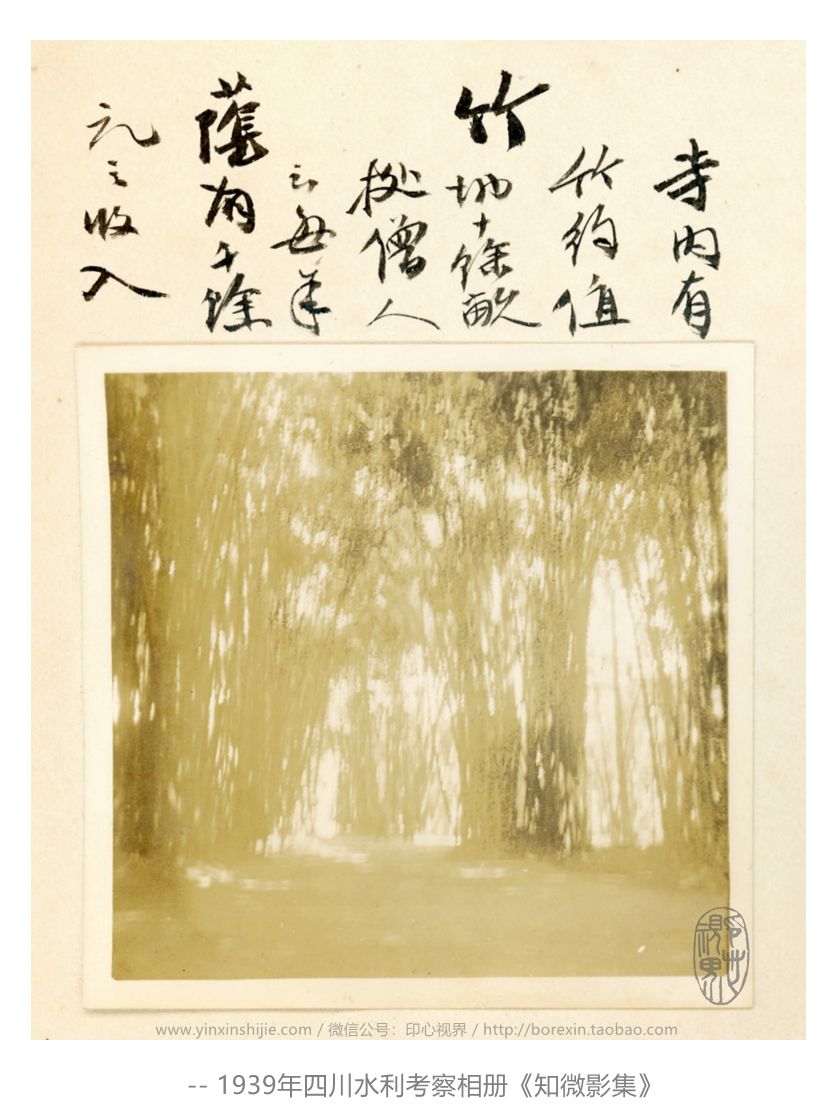 竹蔭
寺内有
竹約值
地十餘畝
拠僧人
云每年
有千餘
元之收入
印心視界
www.yinxinshijie.com / 微信公号：印心视界 / http://borexin.taobao.com
-- 1939年四川水利考察相册《知微影集》